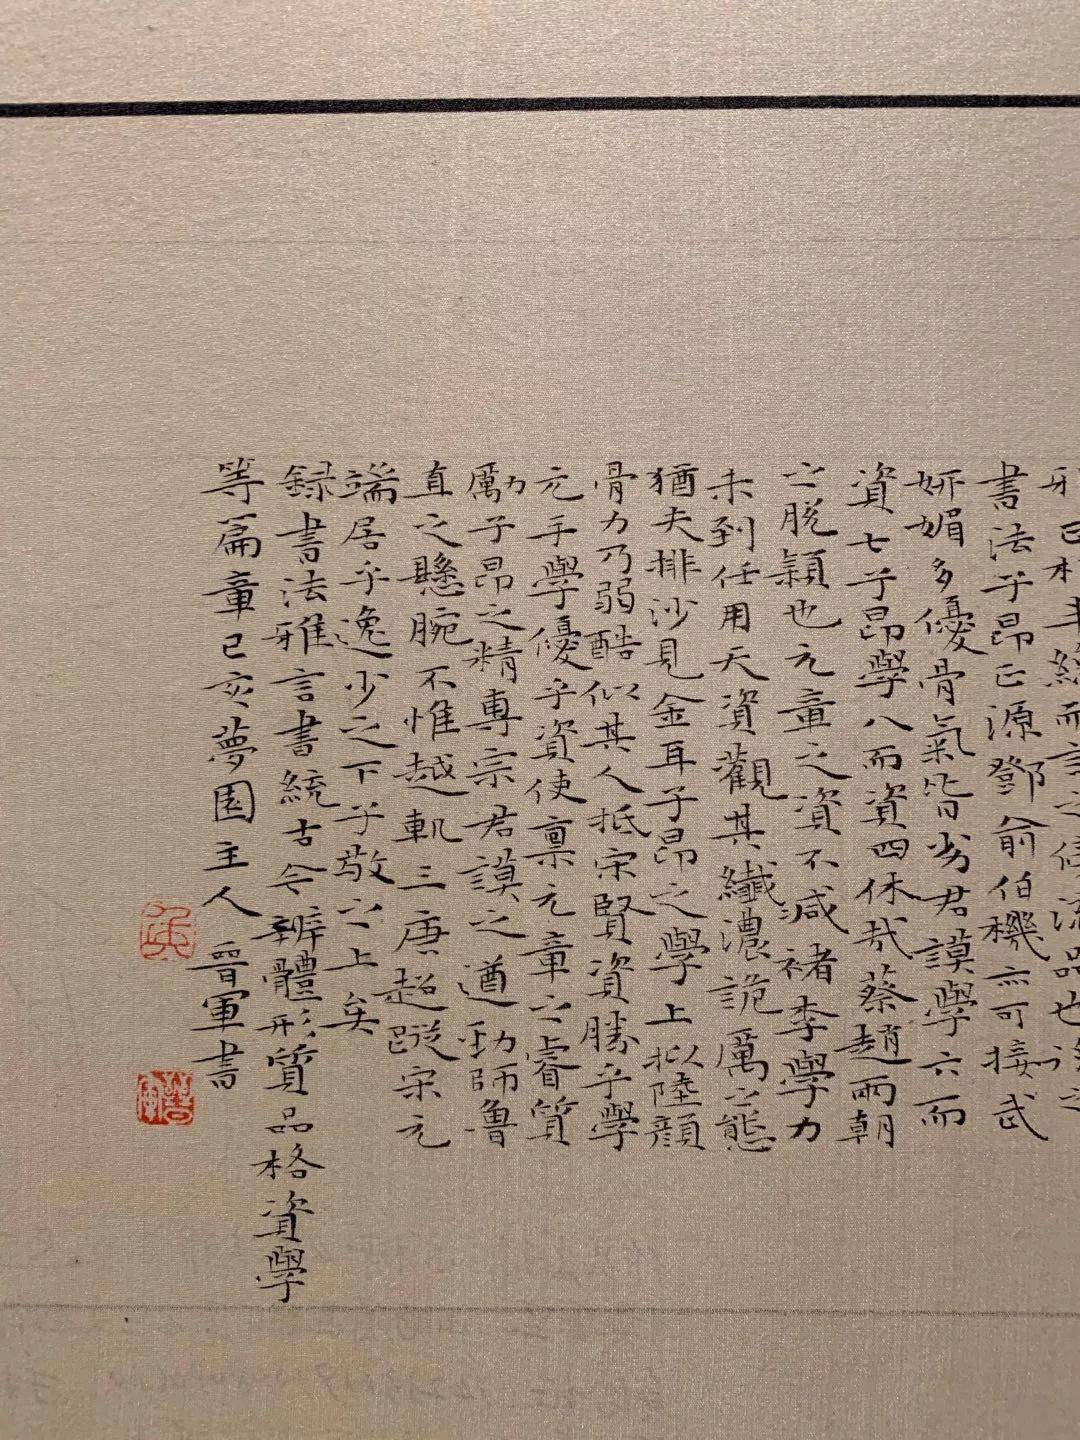 而言之流品也
書法子昂正源鄧俞伯機亦可接武
妍媚多優骨氣皆劣君謨學六而
資七子昂學八而資四休哉蔡趙兩朝
之脫穎也元章之資不減褚李學力
未到任用天資觀其纖濃詭厲之態
猶夫排沙見金耳子昂之學上擬陸顏
骨力乃弱酷似其人抵宋賢資勝乎學
元手學優乎資使稟元章之睿質
勵子昂之精專宗君謨之遒勁師魯
直之懸腕不惟越軌三唐超蹤宋元
端居乎逸少之下子敬之上矣
録書法雅言書統古今辨體形質品格資學
等篇章已亥夢園主人晉軍書